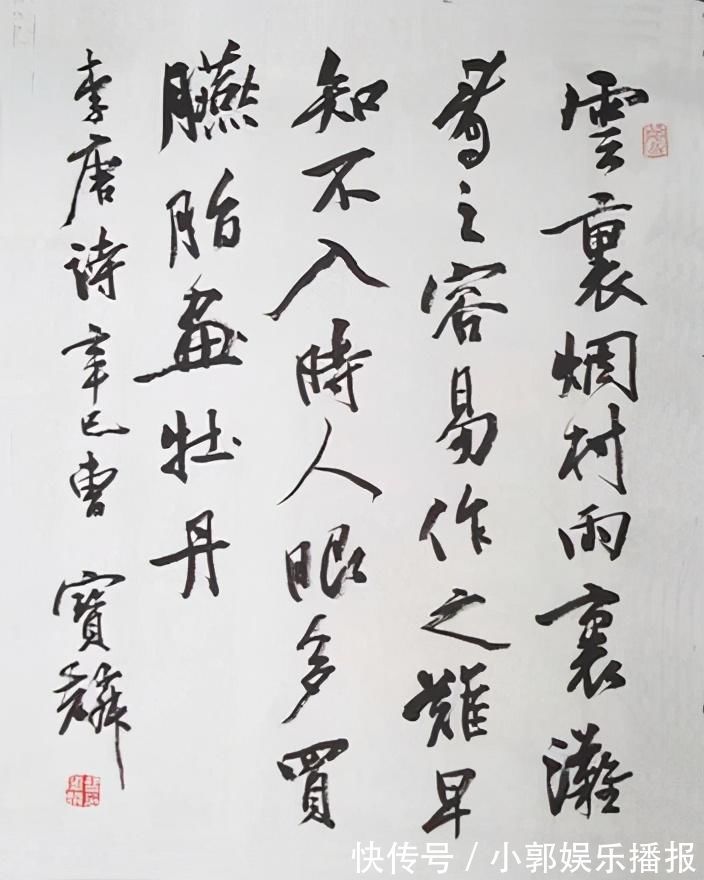 雲裏烟村雨裏灘
看之容易作之難早
知不入時人眼多買
臙脂畫牡丹
李唐詩 辛巳曹寶麟
快传号 / 小郭娱乐播报